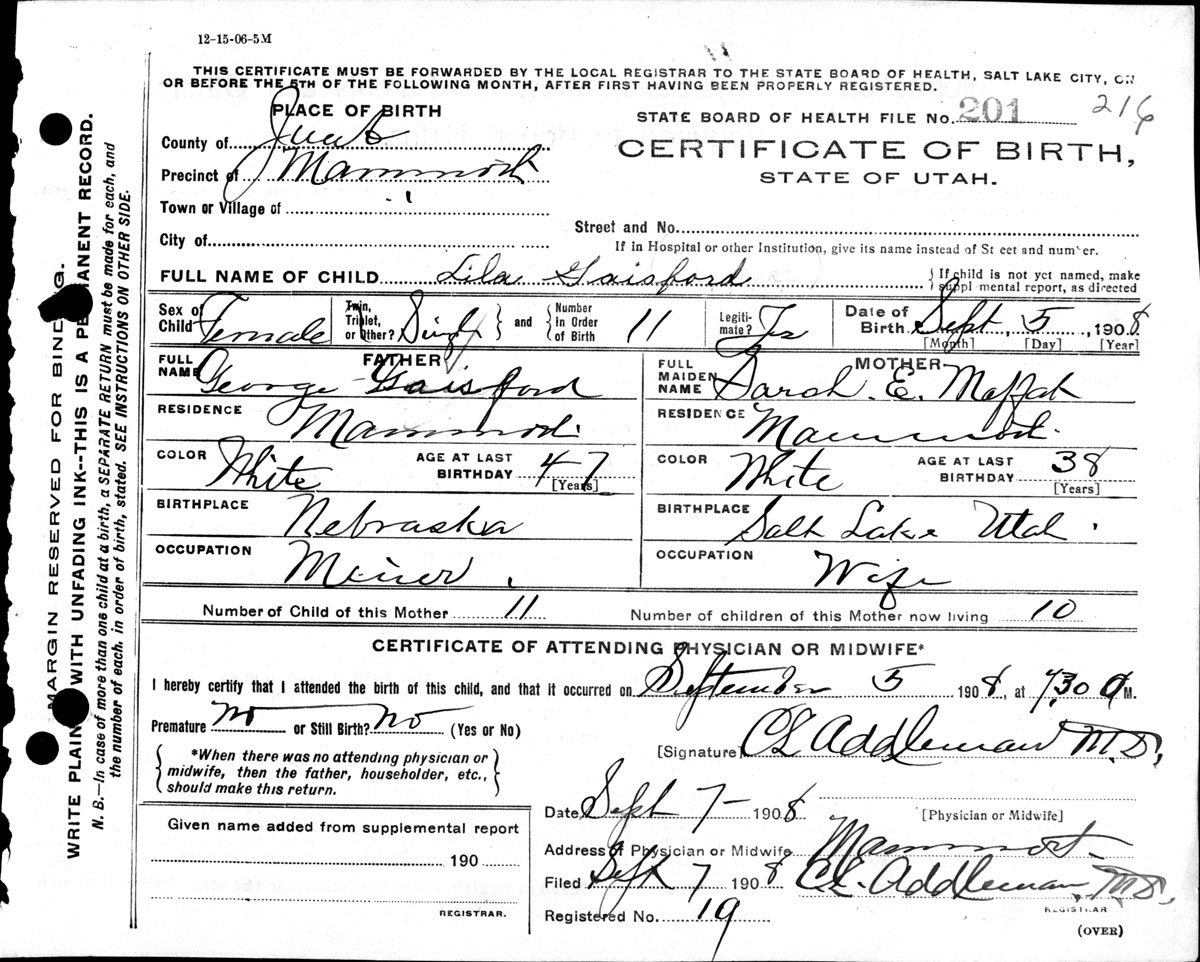 12-15-06-5M
THIS CERTIFICATE MUST BE FORWARDED BY THE LOCAL REGISTRAR TO THE STATE BOARD OF HEALTH, SALT LAKE CITY, ON
OR BEFORE THE 5TH OF THE FOLLOWING MONTH, AFTER FIRST HAVING BEEN PROPERLY REGISTERED.
PLACE OF BIRTH
County of Juab
Precinct of Mammoth
Town or Village of
City of
STATE BOARD OF HEALTH FILE No. 201 216
CERTIFICATE OF BIRTH,
STATE OF UTAH.
Street and No.
If in Hospital or other Institution, give its name instead of St eet and number.
FULL NAME OF CHILD Lila Gaisford
If child is not yet named, make
suppl mental report, as directed
Sex of Child Female
Twin, Triplet, or Other? Single and Number in Order of Birth 11
Legiti-mate? Yes
Date of Birth Sept 5, 1908
[Month] [Day] [Year]
FATHER
FULL NAME George Gaisford
RESIDENCE Mammoth
COLOR White AGE AT LAST BIRTHDAY 47
[Years]
BIRTHPLACE Nebraska
OCCUPATION Miner
MOTHER
FULL MAIDEN NAME Sarah E. Moffat
RESIDENCE Mammoth
COLOR White AGE AT LAST BIRTHDAY 38
[Years]
BIRTHPLACE Salt Lake Utah
OCCUPATION Wife
Number of Child of this Mother 11 Number of children of this Mother now living 10
CERTIFICATE OF ATTENDING PHYSICIAN OR MIDWIFE*
I hereby certify that I attended the birth of this child, and that it occurred on September 5 1908, at 7,30 a M.
Premature no or Still Birth? no (Yes or No)
*When there was no attending physician or
midwife, then the father, householder, etc.,
should make this return.
[Signature] CE Addleman M.D.
[Physician or Midwife]
Date Sept 7- 1908
Address of Physician or Midwife Mammoth
Filed Sept 7 1908 C.E. Addleman, M.D.
REGISTRAR
Registered No. 19
(OVER)
Given name added from supplemental report
190
REGISTRAR.
MARGIN RESERVED FOR BINDING.
WRITE PLAINLY WITH UNFADING INK--THIS IS A PERMANENT RECORD.
N. B.—In case of more than one child at a birth, a SEPARATE RETURN must be made for each, and
the number of each, in order of birth, stated. SEE INSTRUCTIONS ON OTHER SIDE.